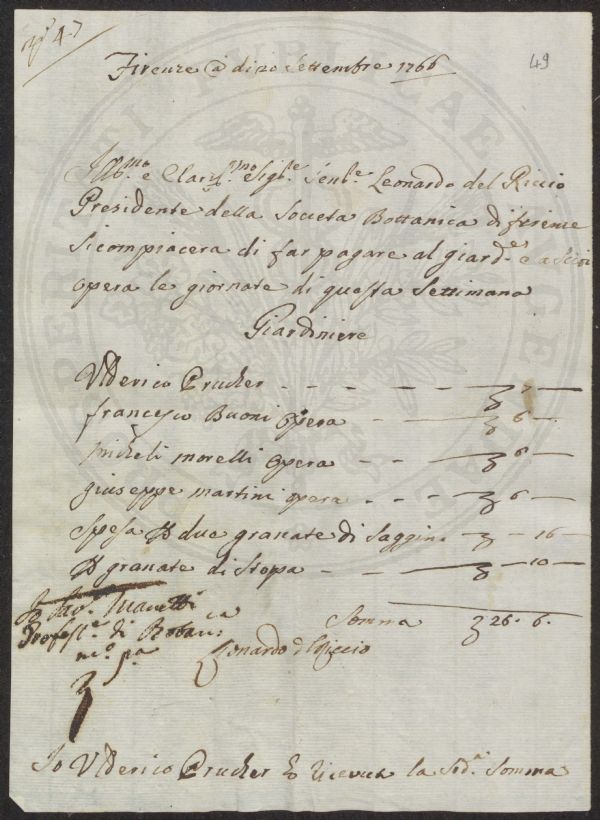 49
Firenze @ di 20 Settembre 1766
Ill.mo e Claris.mo Sig.re Sen.re Leonardo del Riccio
Presidente della Societa Bottanica di firense
Si compiacera di far pagare al giard.e e a Suoi
opera le giornate di questa Settimana
Giardiniere
Ulderico Prucher - - - - - 7 -
francesco Buoni opera - 6 -
micheli morelli opera - - 6 -
giuseppe martini opera - - - 6 -
Spesa due granate di Saggina - 16 -
granate di Stopa - - 10 -
Manetti
Profess.e di Botan:ca
m.o p.a
Somma 26. 6.
Leonardo d Riccio
Io Ulderico Prucher ho riceuta la Sod.a Somma